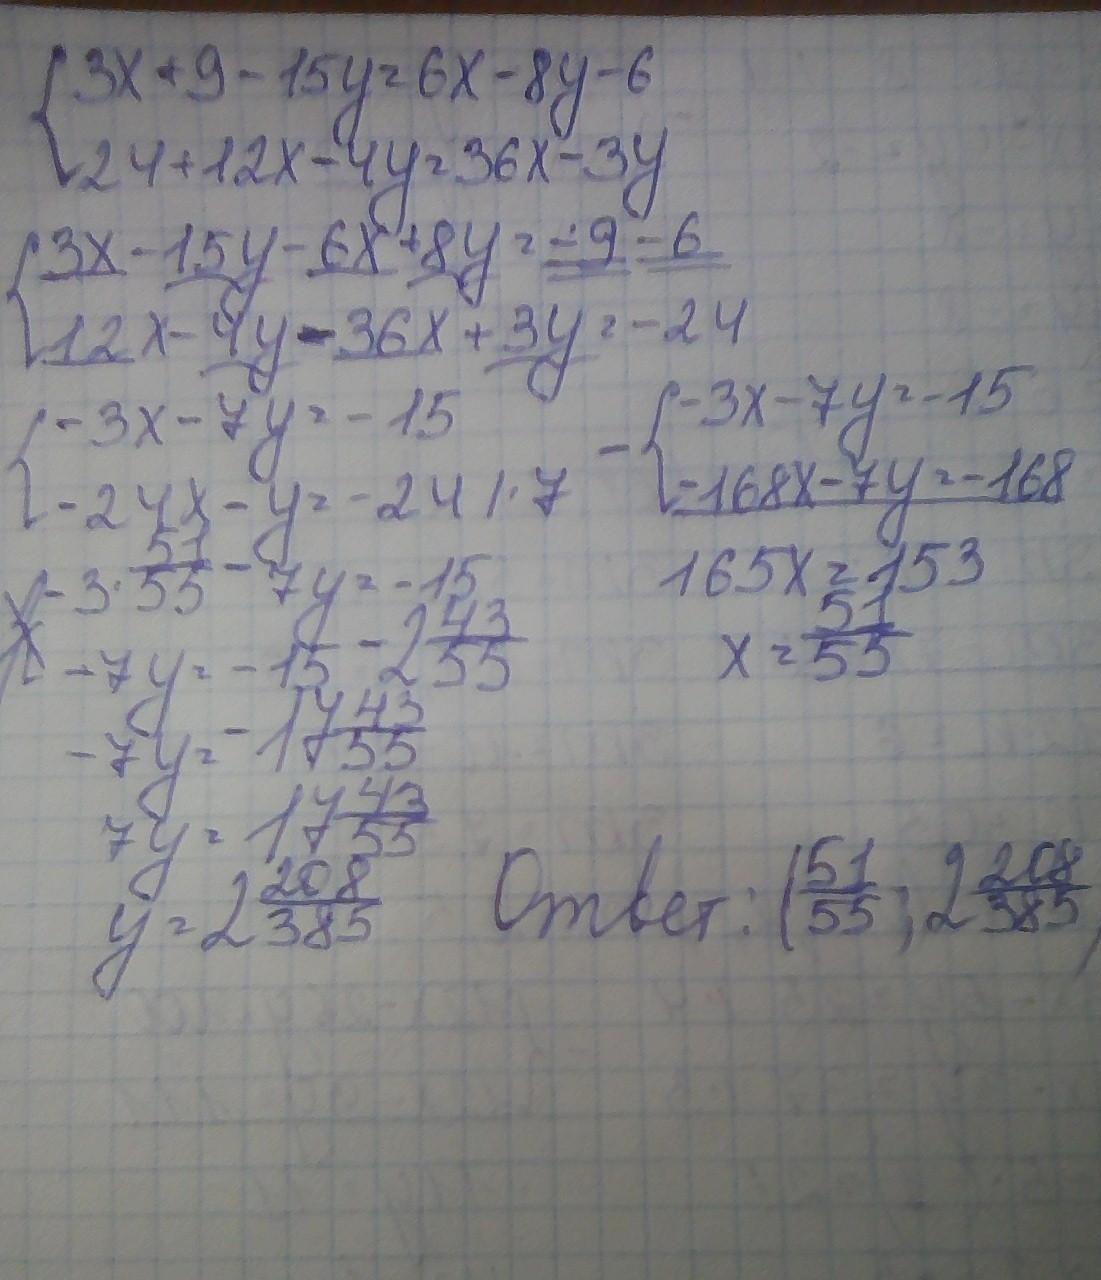 3x+9-15y=6x-8y-6
24+12x-4y=36x-3y
3x-15y-6x+8y=-9-6
12x-4y-36x+3y=-24
-3x-7y=-15
-24x-y=-24 |·7
- -3x-7y=-15
-168x-7y=-168
165x=153
x=51/55
-3·51/55-7y=-15
-7y=-15-2 43/55
-7y=-17 43/55
7y=17 43/55
y=2 208/385
Ответ: (51/55; 2 208/385)